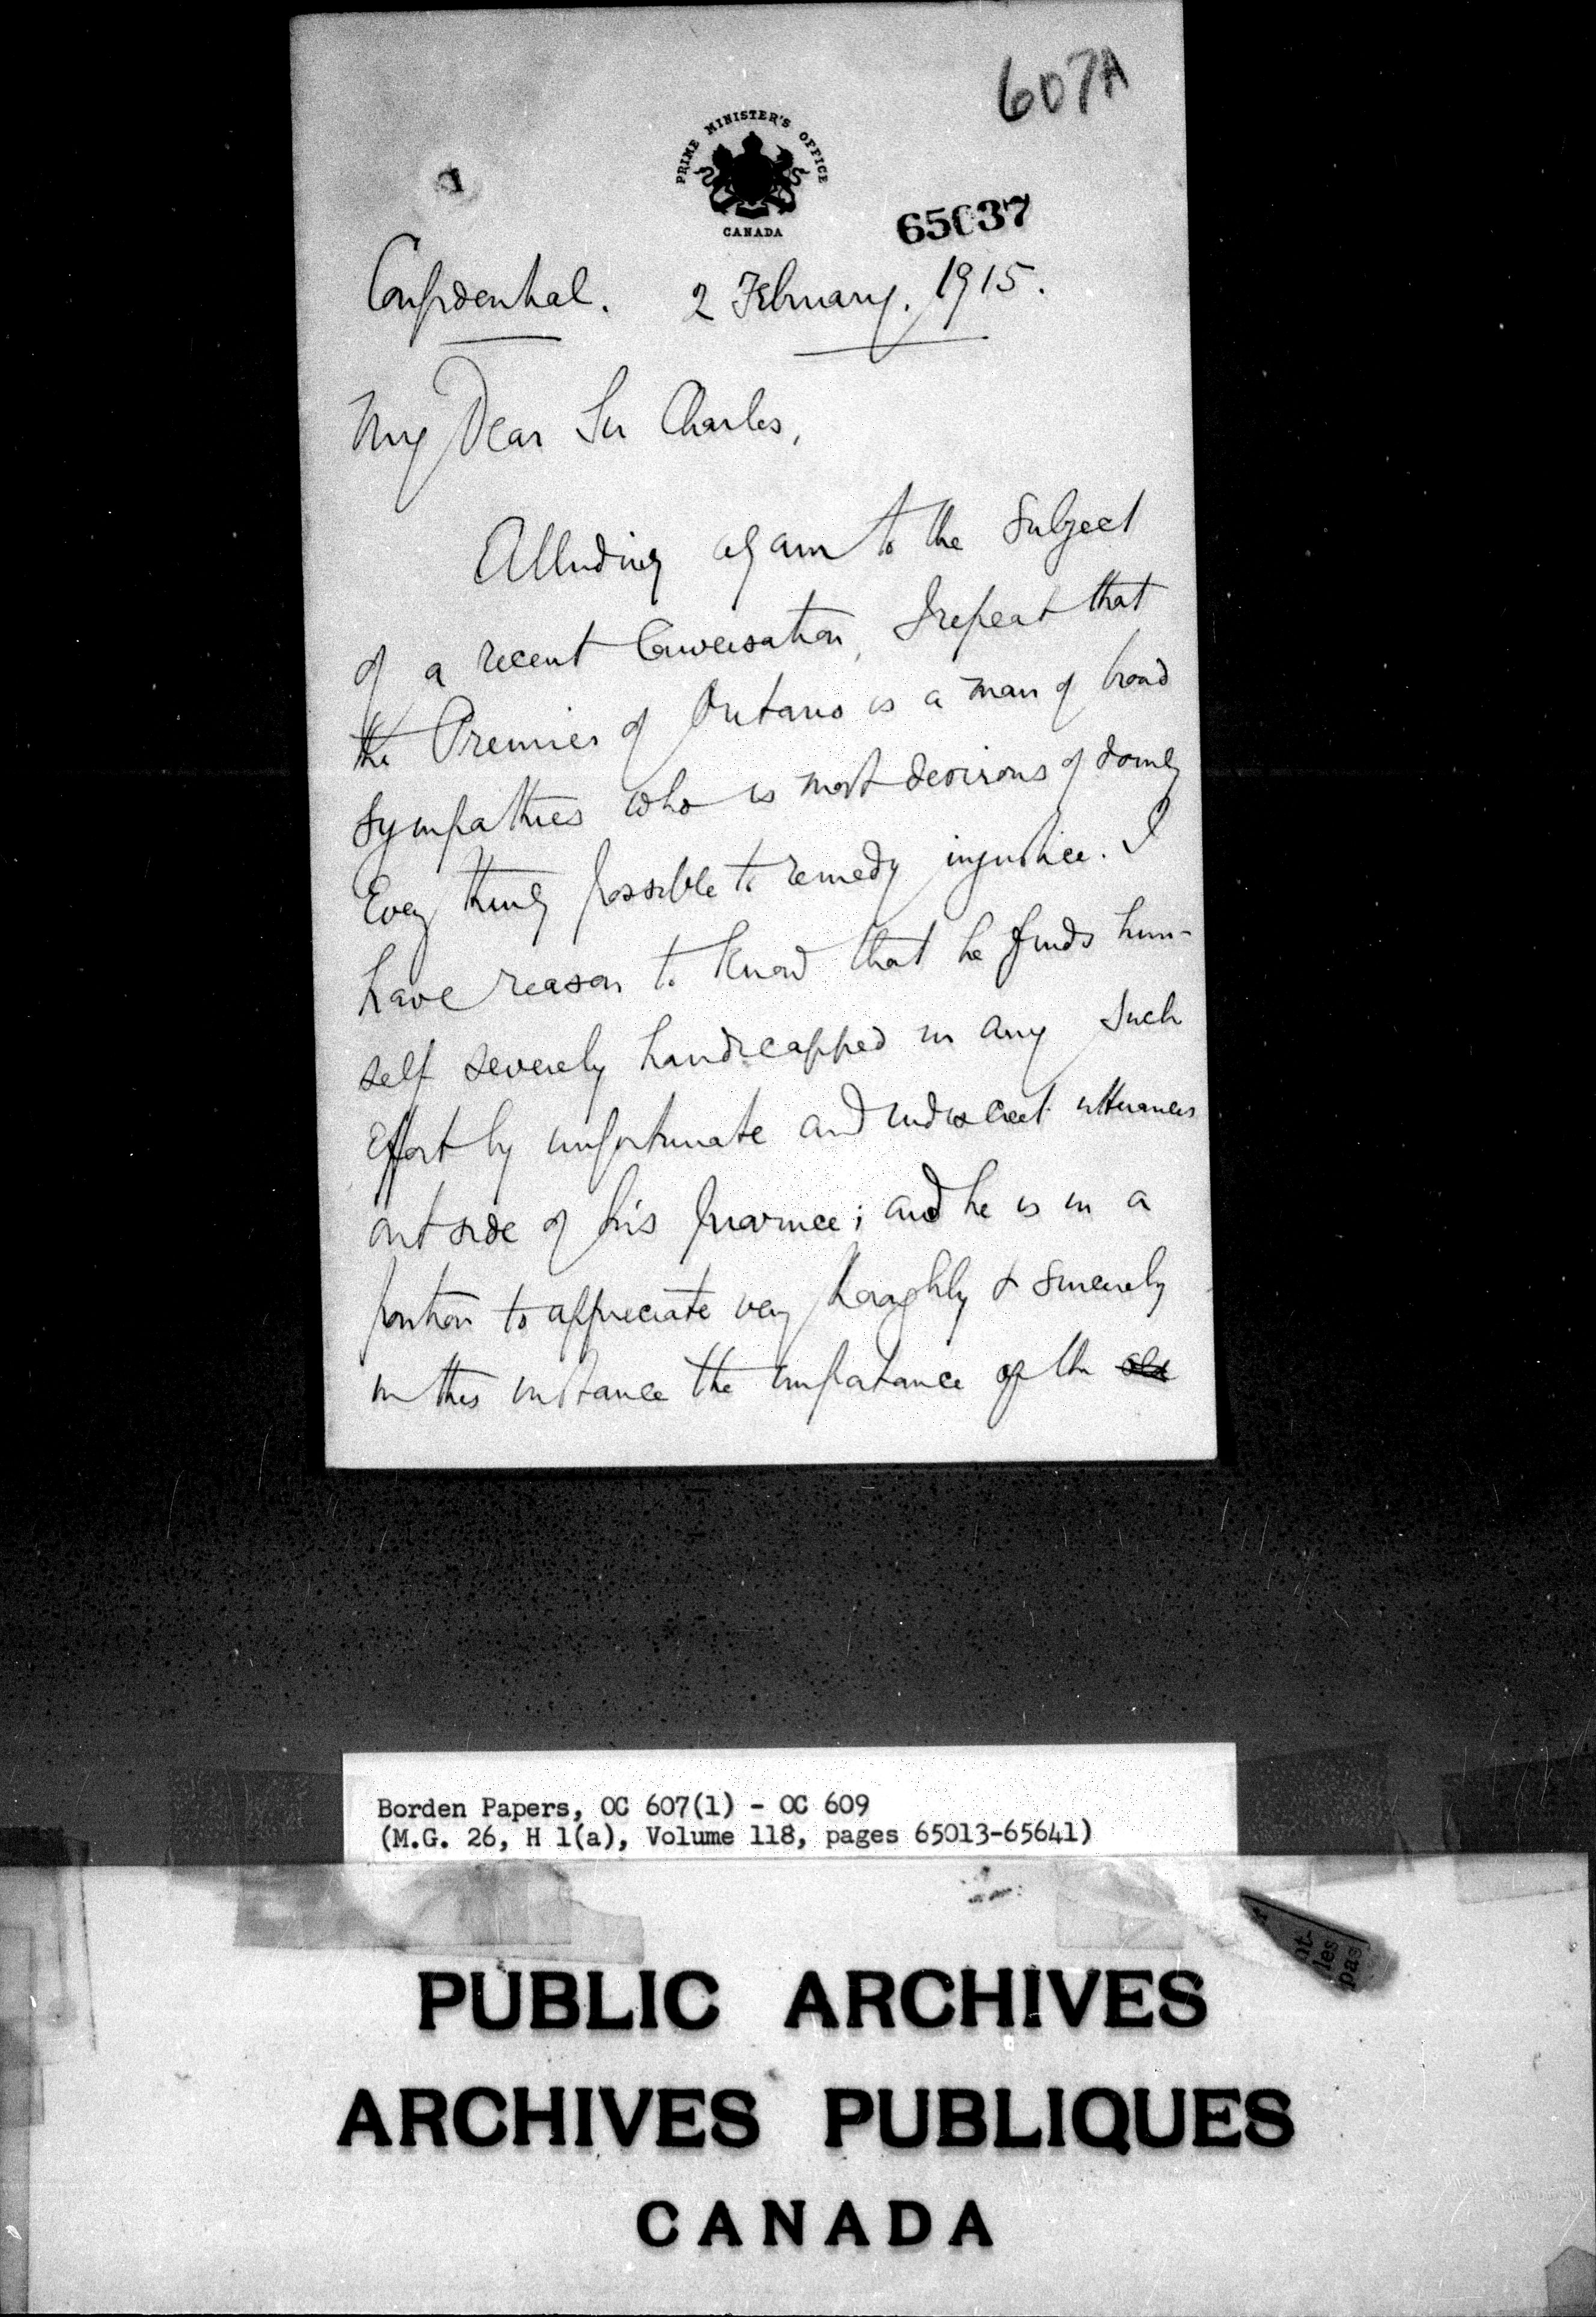 607A
PRIME MINISTER'S OFFICE
CANADA
65037
Confidential. 2 February. 1915.
My Dear Sir Charles,
Alluding again to the subject
of a recent Conversation, I repeat that
the Premier of Ontario is a man of broad
sympathies who is most desirous of doing
Every thing possible to remedy injustice. I
have reason to know that he finds him-
self severely handicapped in any such
effort by unfortunate and indiscreet utterances
outside of his province; and he is in a
position to appreciate very thoroughly & sincerely
in this instance the importance of the
Borden Papers, OC 607(1) - OC 609
(M.G. 26, H 1(a), Volume 118, pages 65013-65641)
nt-
les
pas
PUBLIC ARCHIVES
ARCHIVES PUBLIQUES
CANADA